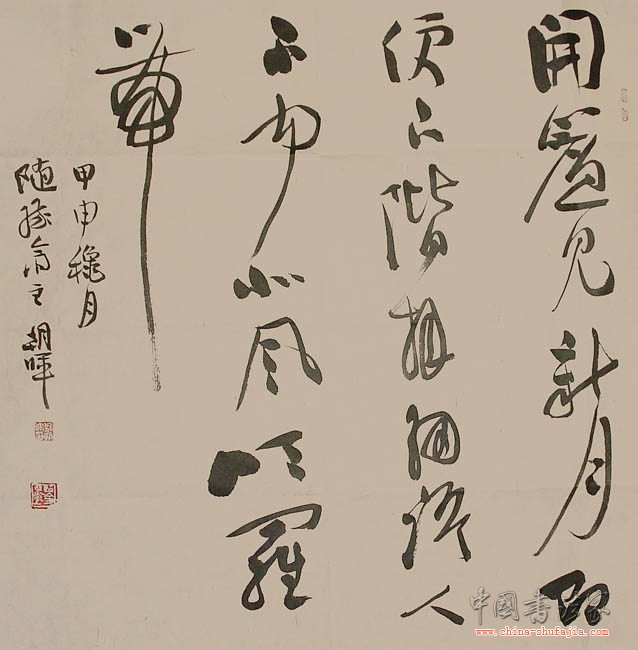 開簾見新月即
便下階拜細語人
不聞北風吹羅
帶
甲申穐月
随缘斋主 胡暉
中國書法家
www.china-shufajia.com